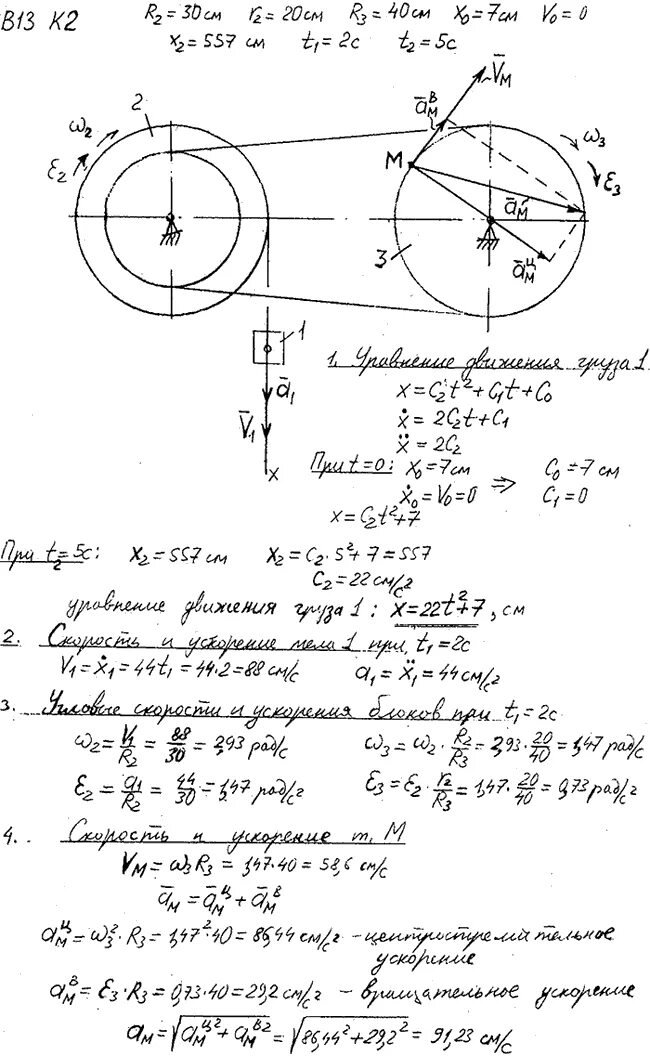 В13 К2 R₂=30см r₂=20см R₃=40см x₀=7см V₀=0
x₂=557 см t₁=2с t₂=5с
2
ω₂
ε₂
V̄м
āмᴮ
M
ω₃
ε₃
āм
āмᶣ
3
1
ā₁
V̄₁
x
1. Уравнение движения груза 1
x=C₂t²+C₁t+C₀
ẋ=2C₂t+C₁
ẍ=2C₂
При t=0: x₀=7см ⇒ C₀=7 см
ẋ₀=V₀=0 C₁=0
x=C₂t²+7
При t₂=5с: x₂=557 см x₂=C₂·5²+7=557
C₂=22 см/с²
уравнение движения груза 1: x=22t²+7, см
2. Скорость и ускорение тела 1 при t₁=2с
V₁=ẋ₁=44t₁=44·2=88 см/с a₁=ẍ₁=44 см/с²
3. Угловые скорости и ускорения блоков при t₁=2с
ω₂=V₁/R₂=88/30=2,93 рад/с ω₃=ω₂·R₂/R₃=2,93·20/40=1,47 рад/с
ε₂=a₁/R₂=44/30=1,47 рад/с² ε₃=ε₂·r₂/R₃=1,47·20/40=0,73 рад/с²
4. Скорость и ускорение т. М
Vм=ω₃R₃=1,47·40=58,6 см/с
āм=āмᶣ+āмᴮ
aмᶣ=ω₃²·R₃=1,47²·40=86,44 см/с² – центростремительное
ускорение
aмᴮ=ε₃·R₃=0,73·40=29,2 см/с² – вращательное ускорение
aм=√(aмᶣ²+aмᴮ²)=√(86,44²+29,2²)=91,23 см/с